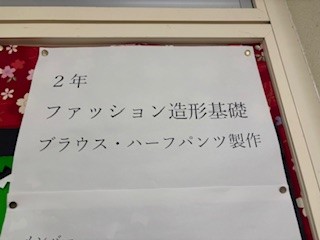 ２年
ファッション造形基礎
ブラウス・ハーフパンツ製作